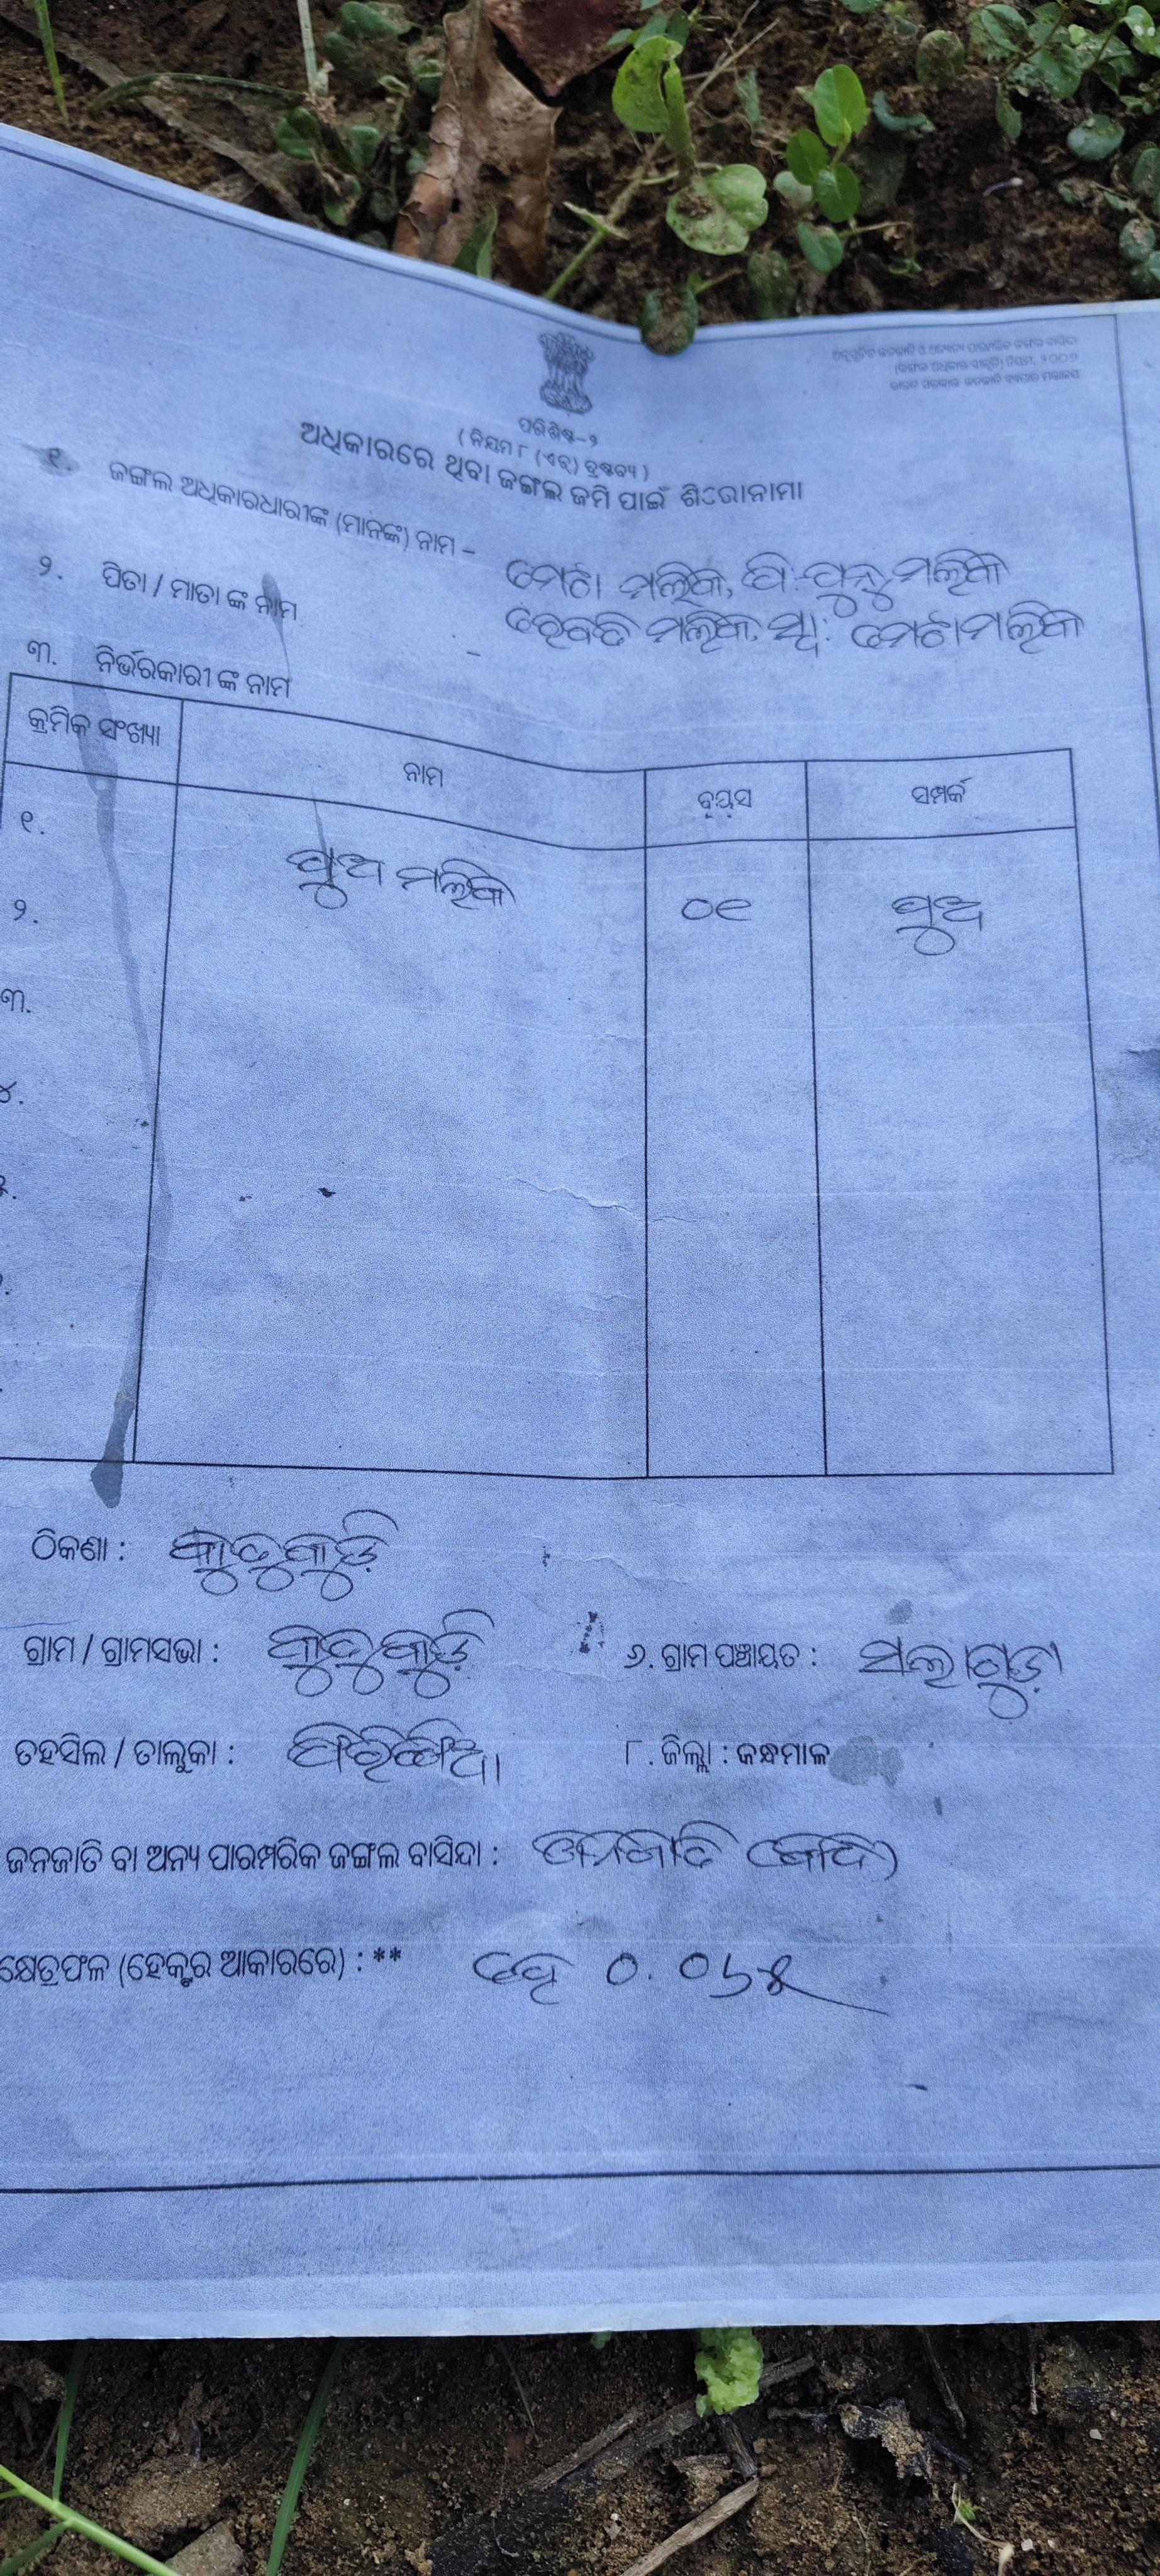 ଅନୁସୂଚିତ ଜନଜାତି ଓ ଅନ୍ୟାନ୍ୟ ପାରମ୍ପରିକ ଜଙ୍ଗଲ ବାସିନ୍ଦା
(ଜଙ୍ଗଲ ଅଧିକାର ସ୍ୱୀକୃତି) ନିୟମ, ୨୦୦୭
ଭାରତ ସରକାର ଜନଜାତି ବ୍ୟାପାର ମନ୍ତ୍ରାଳୟ
ପରିଶିଷ୍ଟ-୨
( ନିୟମ ୮ (ଏଚ୍) ଦ୍ରଷ୍ଟବ୍ୟ )
ଅଧିକାରରେ ଥିବା ଜଙ୍ଗଲ ଜମି ପାଇଁ ଶିରୋନାମା
୧. ଜଙ୍ଗଲ ଅଧିକାରଧାରୀଙ୍କ (ମାନଙ୍କ) ନାମ – ମେଟା ମଲିକ, ପି:-ପୁନୁ ମଲିକ
୨. ପିତା / ମାତା ଙ୍କ ନାମ – ରେବତି ମଲିକ, ସ୍ୱା: ମେଟା ମଲିକ
୩. ନିର୍ଭରକାରୀ ଙ୍କ ନାମ
କ୍ରମିକ ସଂଖ୍ୟା ନାମ ବୟସ ସମ୍ପର୍କ
୧. ପୁଅ ମଲିକ ୦୧ ପୁଅ
୨.
୩.
୪.
୫.
ଠିକଣା : କୁଦୁକୁଡ଼ି
ଗ୍ରାମ / ଗ୍ରାମସଭା : କୁଦୁକୁଡ଼ି ୬. ଗ୍ରାମ ପଞ୍ଚାୟତ : ସଲାଗୁଡ଼ା
ତହସିଲ / ତାଲୁକା : ଫିରିଙ୍ଗିଆ ୮. ଜିଲ୍ଲା : କନ୍ଧମାଳ
ଜନଜାତି ବା ଅନ୍ୟ ପାରମ୍ପରିକ ଜଙ୍ଗଲ ବାସିନ୍ଦା : ଜନଜାତି
କ୍ଷେତ୍ରଫଳ (ହେକ୍ଟର ଆକାରରେ) : ** ହେ ୦.୦୬୫